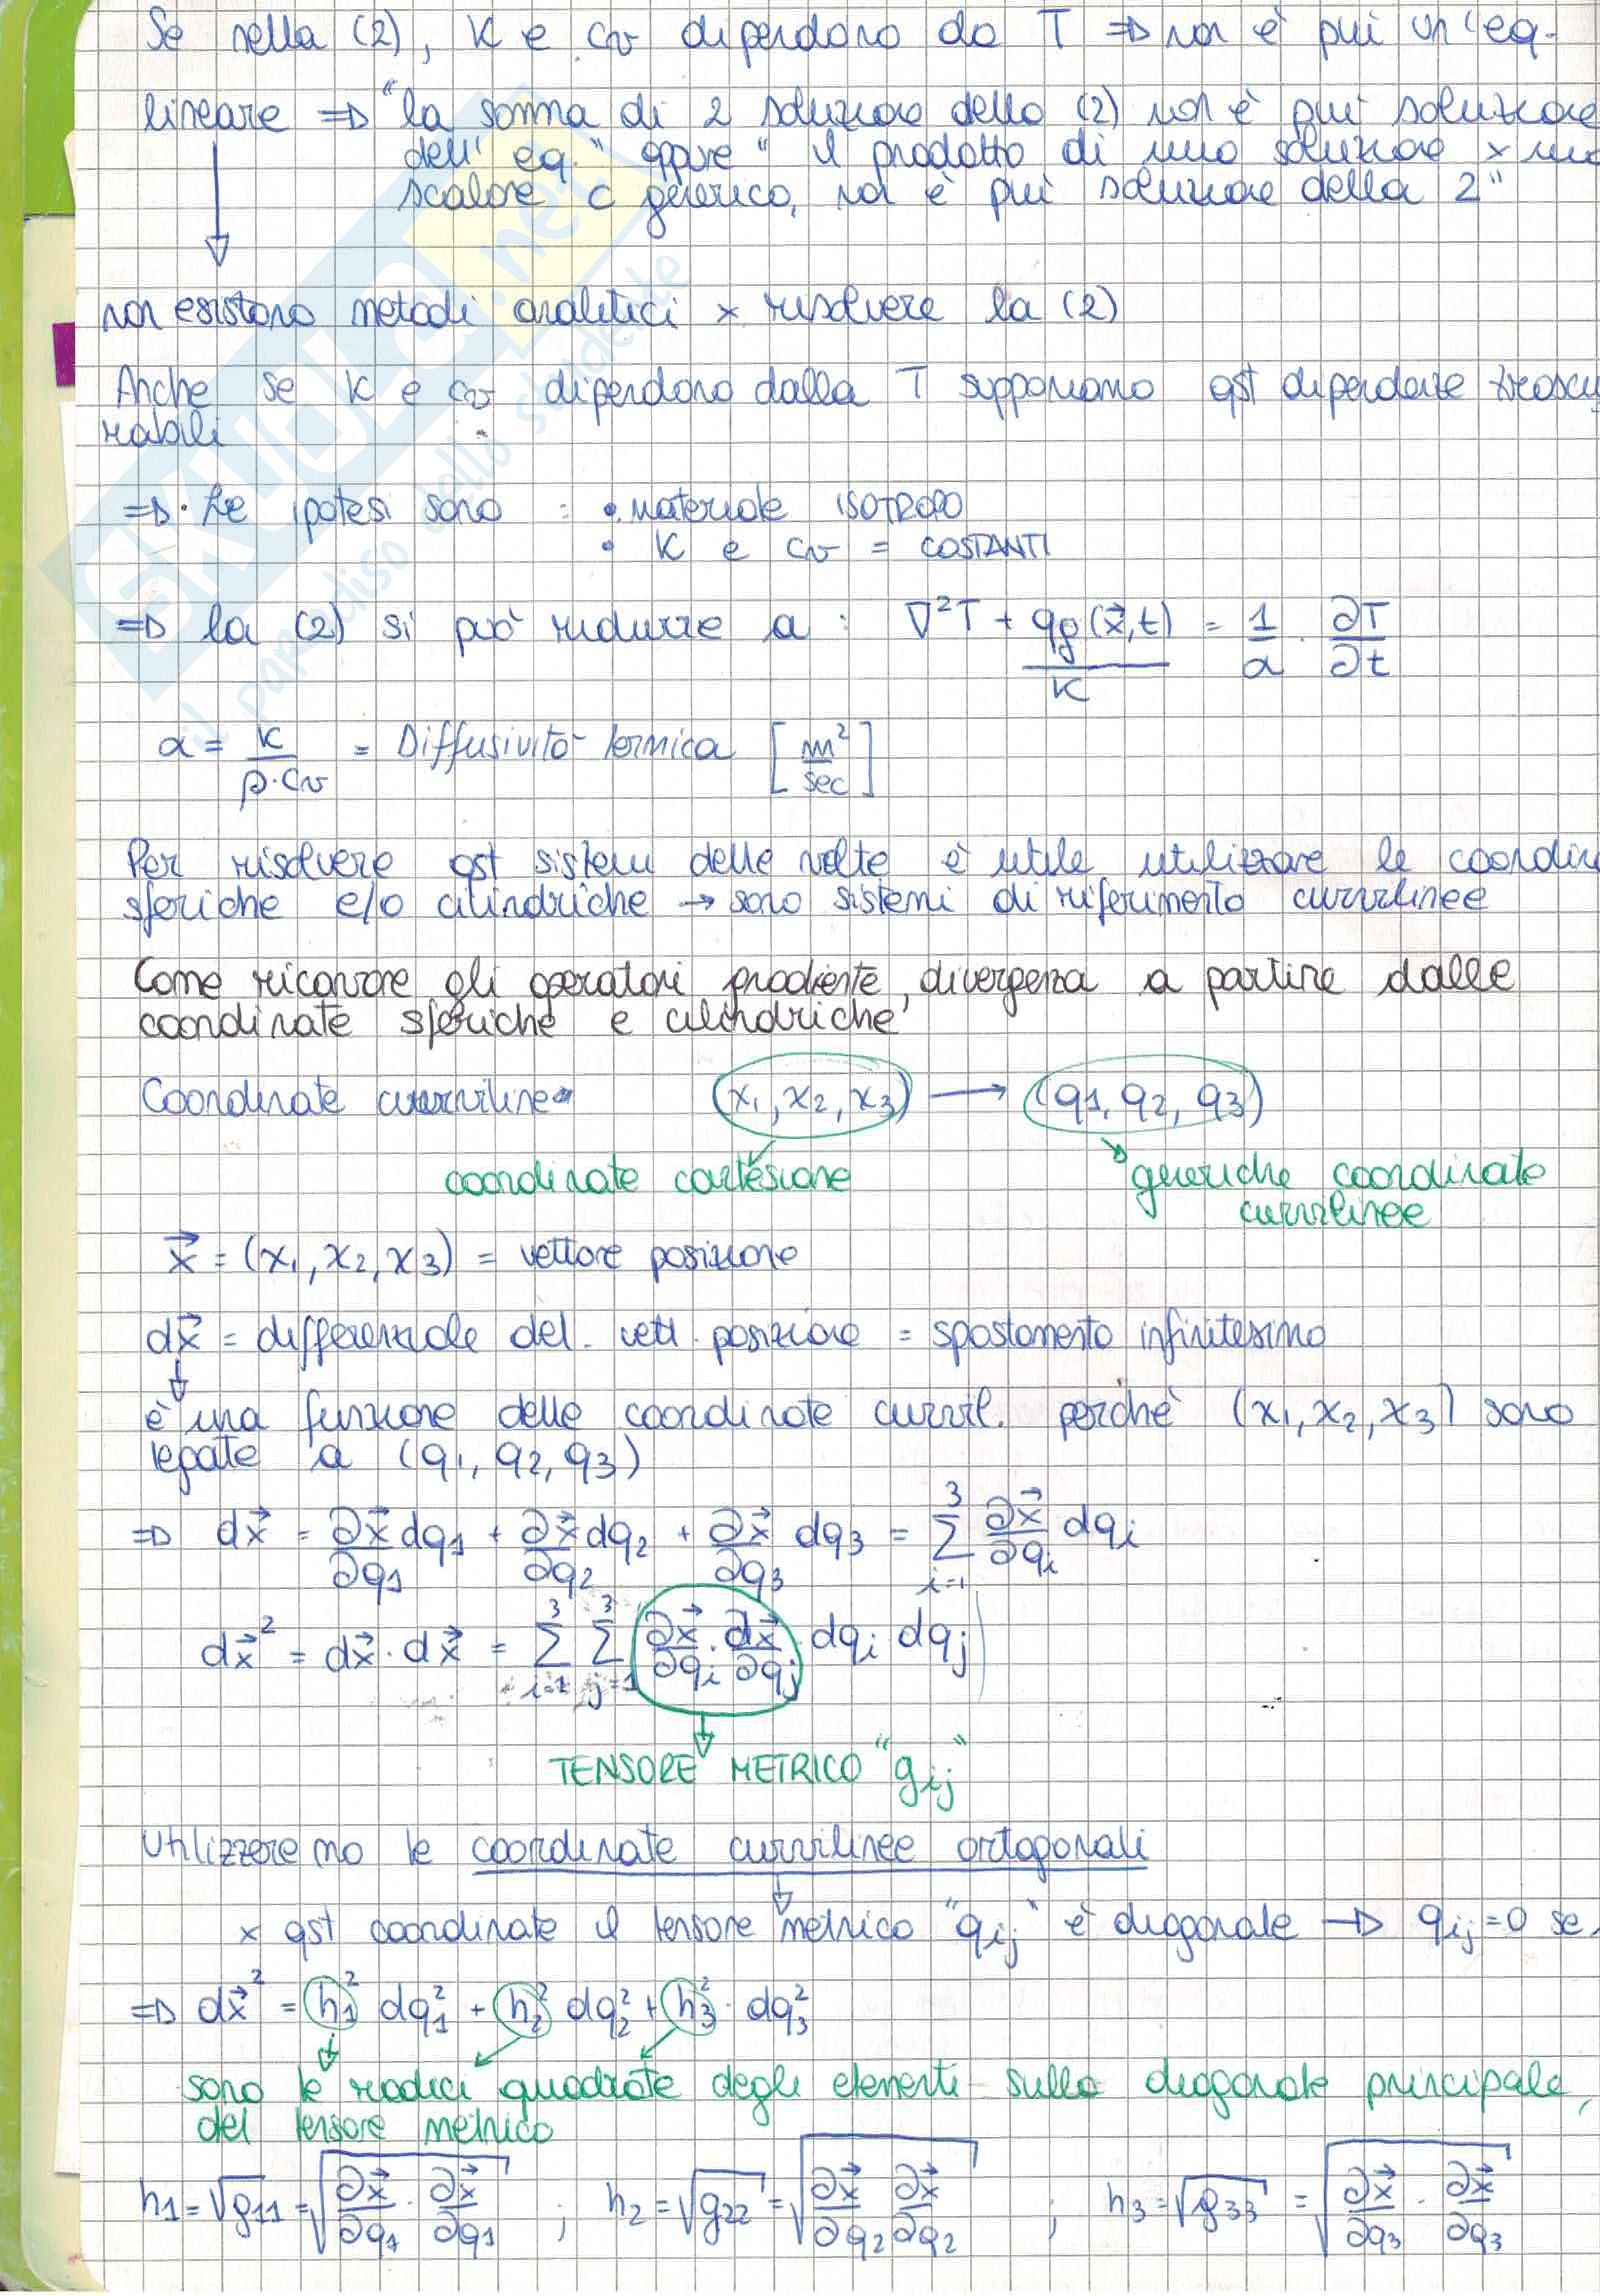 Se nella (2), K e cv dipendono da T ⇒ non è più un'eq.
lineare ⇒ "la somma di 2 soluzione della (2) non è più soluzione
dell'eq." oppure "il prodotto di una soluzione x uno
scalare c generico, non è più soluzione della 2"
non esistono metodi analitici x risolvere la (2)
Anche se K e cv dipendono dalla T supponiamo qst dipendenze trascu
rabili
⇒ · Le ipotesi sono : • materiale ISOTROPO
• K e cv = COSTANTI
⇒ la (2) si può ridurre a : ∇²T + qg(x⃗,t)/K = 1/α · ∂T/∂t
α = K/ρ·cv = Diffusività termica [m²/sec]
Per risolvere qst sistemi delle volte è utile utilizzare le coordin
sferiche e/o cilindriche → sono sistemi di riferimento curvilinee
Come ricavare gli operatori gradiente, divergenza a partire dalle
coordinate sferiche e cilindriche
Coordinate curvilinee (x1, x2, x3) → (q1, q2, q3)
coordinate cartesiane generiche coordinate
curvilinee
x⃗ = (x1, x2, x3) = vettore posizione
dx⃗ = differenziale del vett. posizione = spostamento infinitesimo
è una funzione delle coordinate curvil. perché (x1, x2, x3) sono
legate a (q1, q2, q3)
⇒ dx⃗ = ∂x⃗/∂q1 dq1 + ∂x⃗/∂q2 dq2 + ∂x⃗/∂q3 dq3 = Σ(i=1→3) ∂x⃗/∂qi dqi
dx⃗² = dx⃗ · dx⃗ = Σ(i=1→3) Σ(j=1→3) ∂x⃗/∂qi · ∂x⃗/∂qj · dqi dqj
TENSORE METRICO "gij"
Utilizzeremo le coordinate curvilinee ortogonali
x qst coordinate il tensore metrico "gij" è diagonale → gij = 0 se
⇒ dx⃗² = h1² dq1² + h2² dq2² + h3² · dq3²
sono le radici quadrate degli elementi sulla diagonale principale
del tensore metrico
h1 = √g11 = √(∂x⃗/∂q1 · ∂x⃗/∂q1) ; h2 = √g22 = √(∂x⃗/∂q2 ∂x⃗/∂q2) ; h3 = √g33 = √(∂x⃗/∂q3 · ∂x⃗/∂q3)
SKUOLA.net
il paradiso dello studente